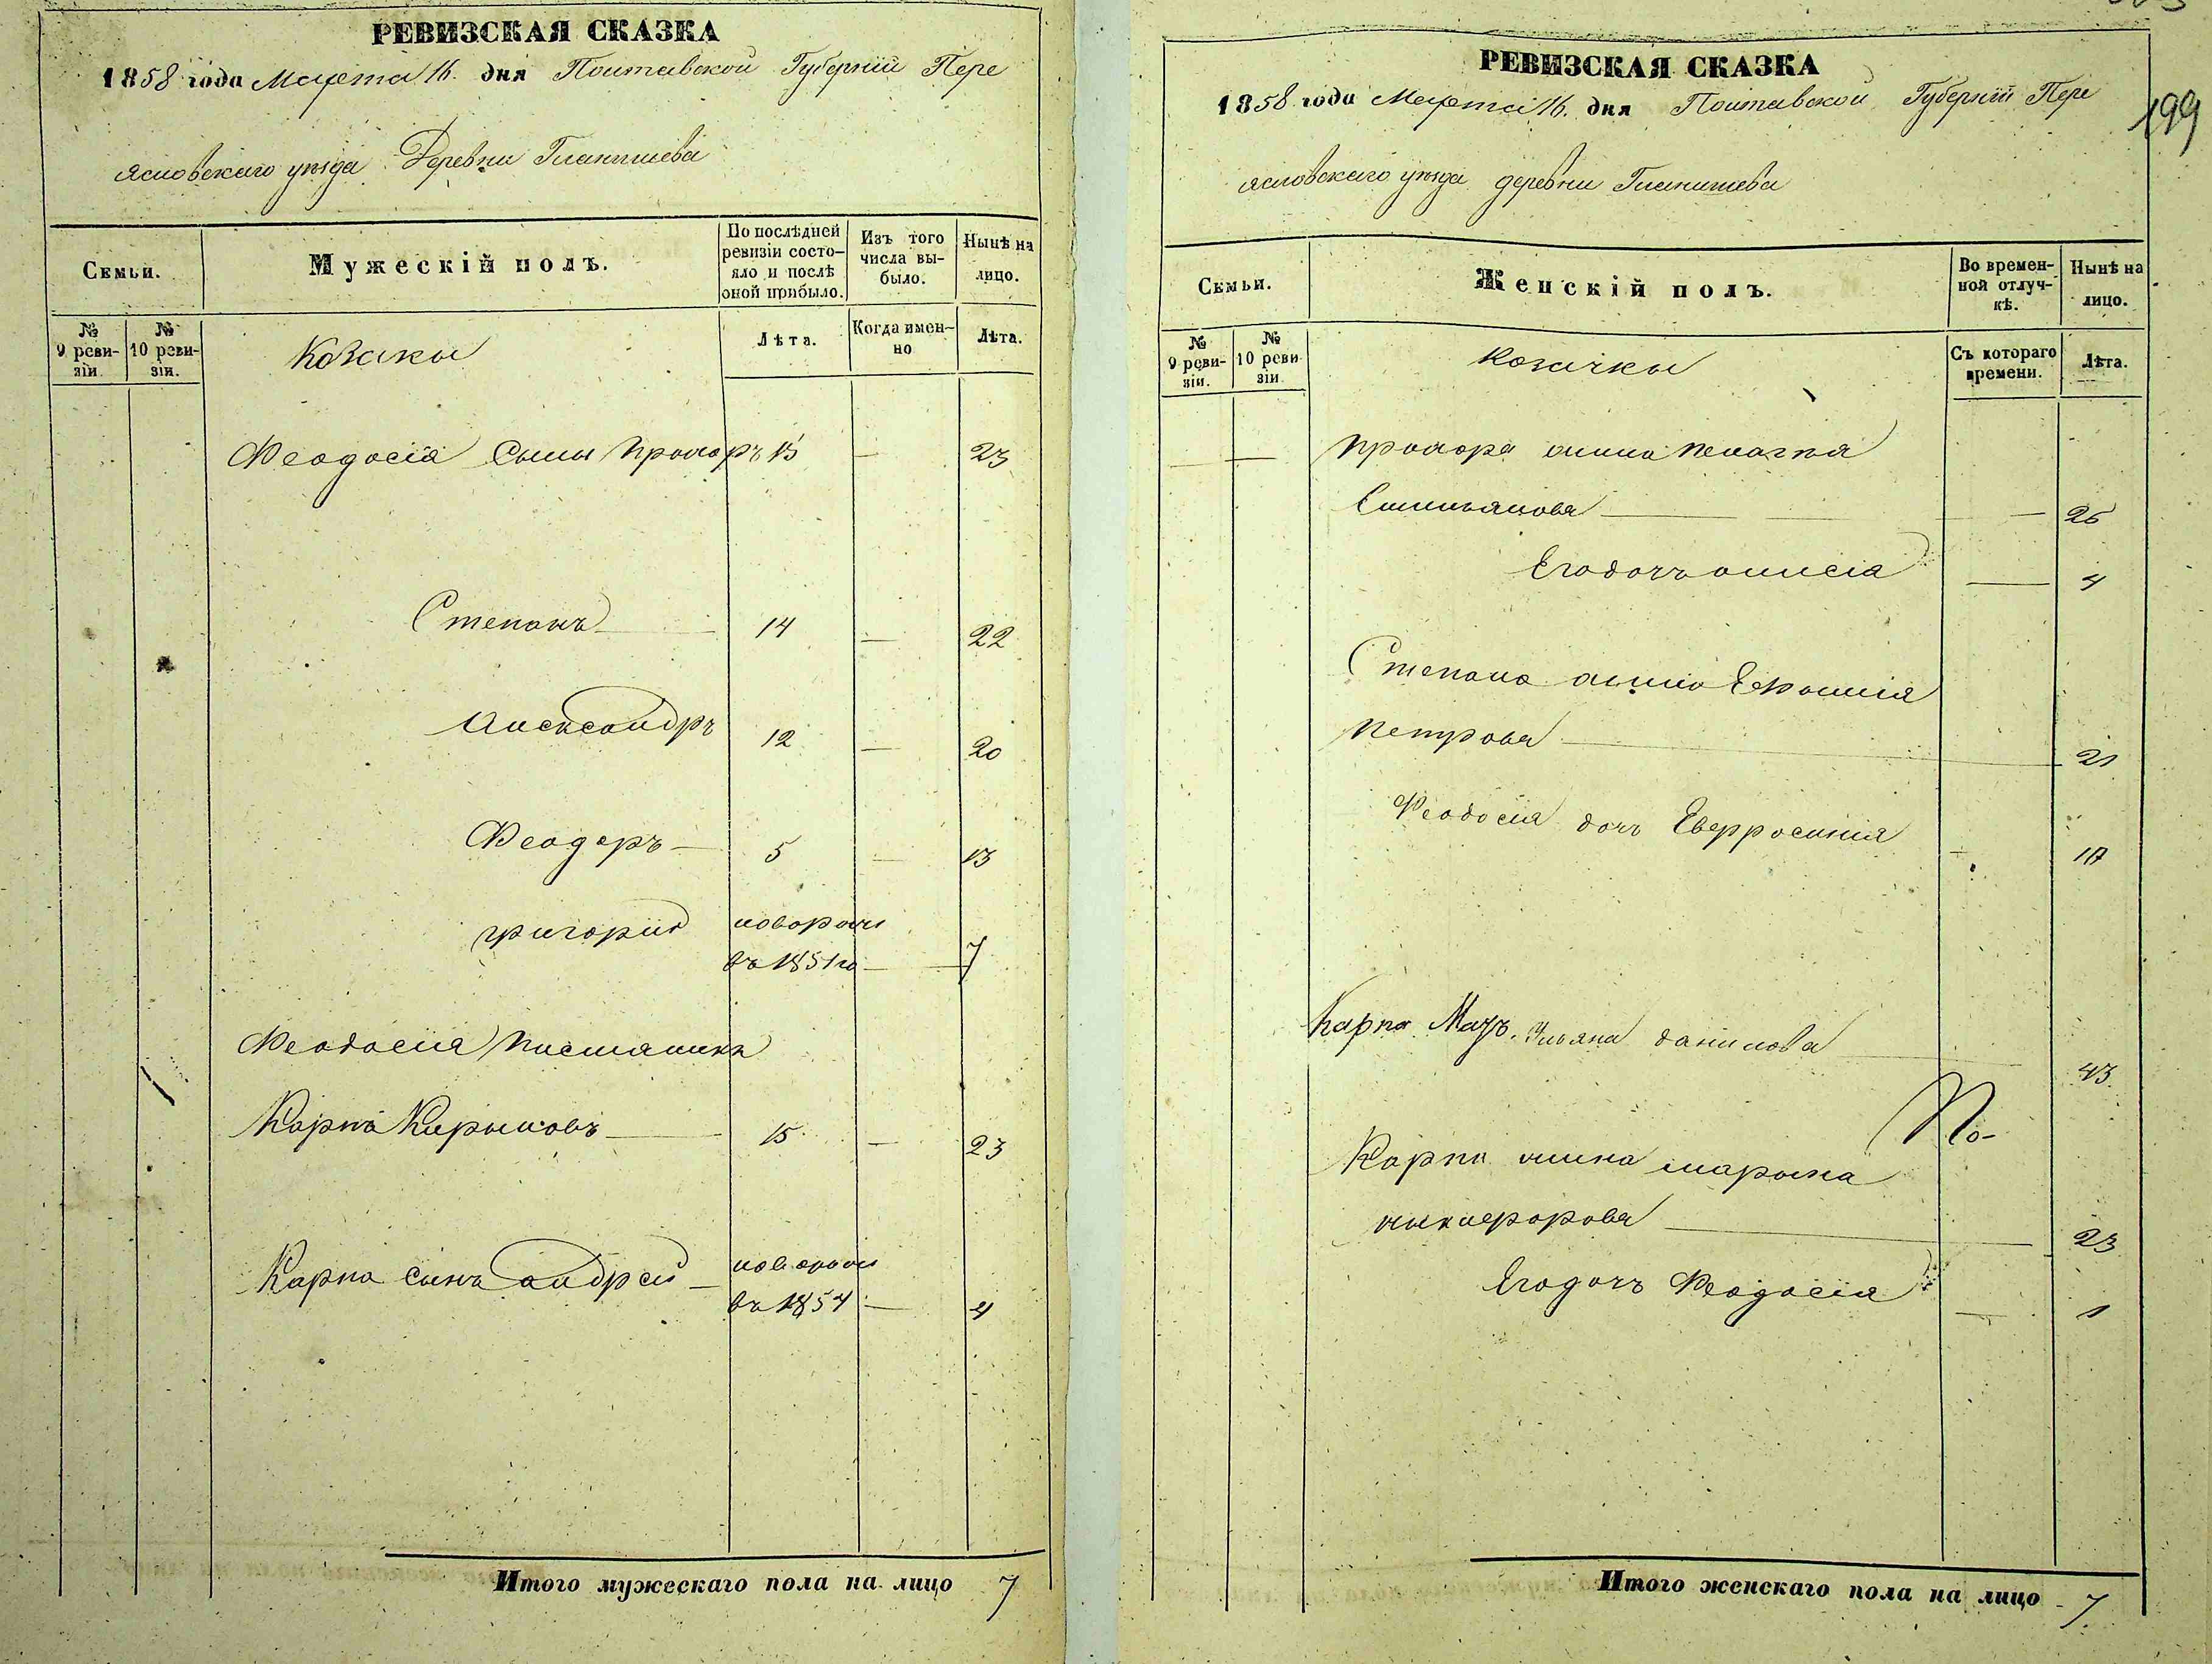 РЕВИЗСКАЯ СКАЗКА
1858 года Марта 16. дня Полтавской Губерніи Пере
яславскаго уѣзда Деревни Гланишева
Семьи.
Мужескій полъ.
По послѣдней ревизіи состо-
яло и послѣ оной прибыло.
Изъ того числа вы-
было.
Нынѣ на лицо.
№ 9 реви-
зіи.
№ 10 реви-
зіи.
Козаки
Лѣта.
Когда имен-
но
Лѣта.
Феодосія Сыны Прохоръ 15 — 23
Степанъ — 14 — 22
Александръ 12 — 20
Феодоръ — 5 — 13
Григорий новорож
въ 1851 го — 7
Феодосія
Карпъ Кириловъ — 15 — 23
Карпа сынъ Андрей — новорож
въ 1854 — 4
Итого мужескаго пола на лицо 7
РЕВИЗСКАЯ СКАЗКА
1858 года Марта 16. дня Полтавской Губерніи Пере
яславскаго уѣзда деревни Гланишева
199
Семьи.
Женскій полъ.
Во времен-
ной отлуч-
кѣ.
Нынѣ на лицо.
№ 9 реви-
зіи.
№ 10 реви
зіи
Козачки
Съ котораго времени.
Лѣта.
Прохора жина Пелагия
Емильянова — 26
Его дочь — 4
Степана жина Ефимия
Петрова — 21
Феодосия дочь Евфросиния 17
Карпа Мать. Ульяна данилова 43
По-
Карпа жина марына
никифорова — 23
Его дочь Феодосия — 1
Итого женскаго пола на лицо - 7.